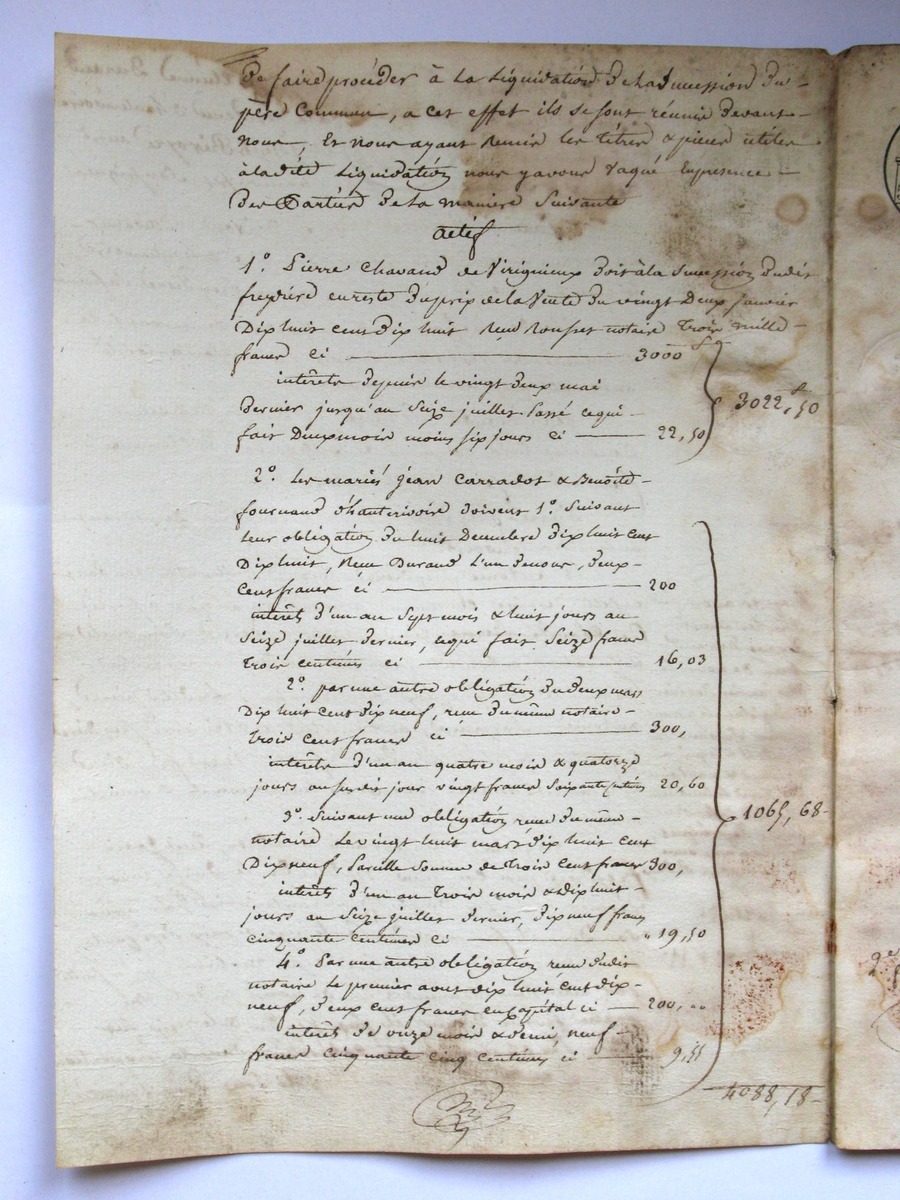 de faire procéder à la liquidation de la succession du
père commun, a cet effet ils se sont réunis devant
nous, Et nous ayant remis les titres & pièces utiles
à ladite liquidation nous y avons vaqué en presence
des Parties de la maniere suivante
actif
1° Pierre Chavand de Virignieux doit à la succession dudit
freydiere en reste du prix de la vente du vingt deux janvier
Dix huit cent dix huit reçu Rousset notaire trois mille
francs ci 3000 f
intérêts depuis le vingt deux mai
dernier jusqu'au seize juillet passé ce qui
fait deux mois moins six jours ci 22,50
3022 f,50
2° Les mariés jean Carradot & Benoite
fournand d'hauterivoire doivent 1° suivant
leur obligation du huit Decembre dix huit cent
Dix huit, reçue Durand l'un de nous, deux
cent francs ci 200
intérêts d'un an sept mois & huit jours au
seize juillet dernier, ce qui fait seize francs
trois centimes ci 16,03
2° par une autre obligation du deux mars
Dix huit cent dix neuf, reçue du même notaire
trois cent francs ci 300,
intérêts d'un an quatre mois & quatorze
jours au susdit jour vingt francs soixante centimes 20,60
3° suivant une obligation reçue du même
notaire le vingt huit mars dix huit cent
Dix neuf, pareille somme de trois cent francs 300,
intérêts d'un an trois mois & dix huit
jours au seize juillet dernier, dix neuf francs
cinquante centimes ci " 19,50
4° Par une autre obligation reçue dudit
notaire le premier aout dix huit cent dix
neuf, deux cent francs en capital ci 200, ..
intérêts de onze mois & demi, neuf
francs cinquante cinq centimes ci 9,55
1065,68
4088,18